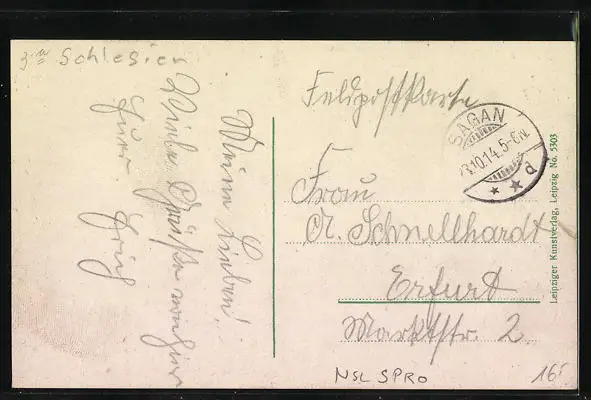 3 M Schlesien
Meine Lieben!
Viele Grüße
Euer
Feldpostkarte
SAGAN
.10.14.5-6N.
* * d
Frau
A. Schnellhardt
Erfurt
Marktstr. 2.
Leipziger Kunstverlag, Leipzig No. 5303
NSL SPRO
16,